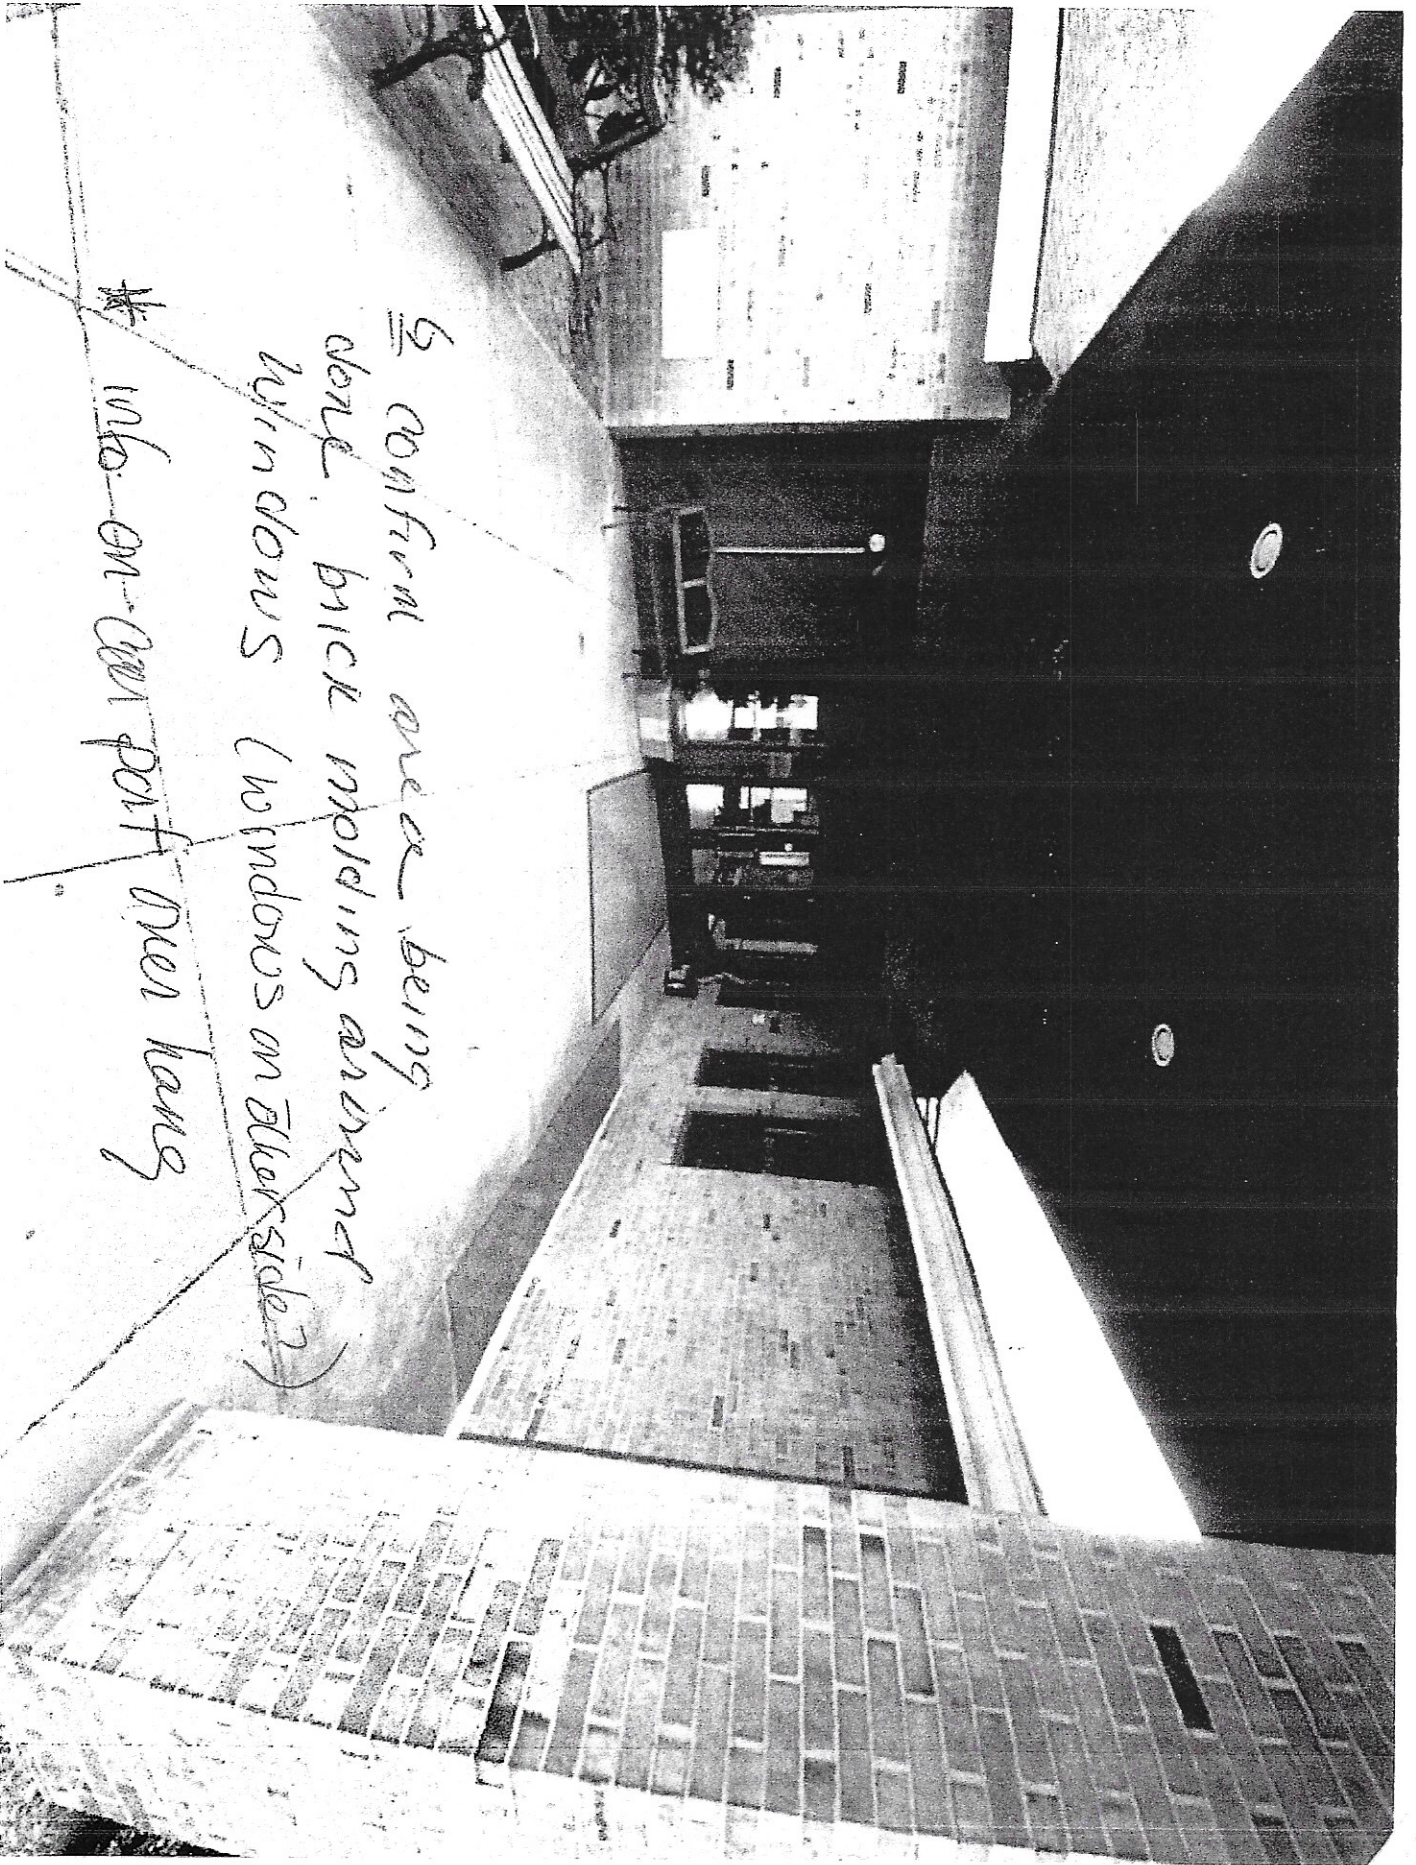 5 confirm area being
done. brick molding around
windows (windows on otherside?)
* info on car port over hang